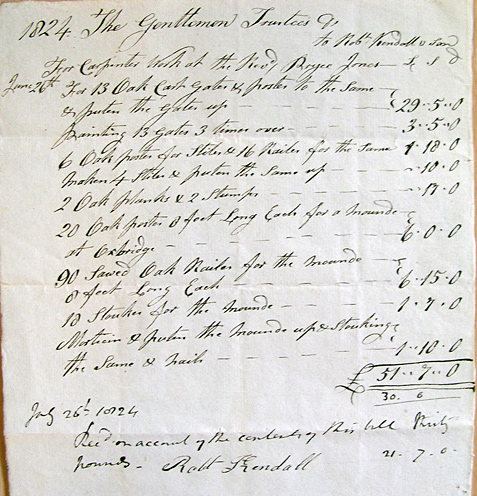 1824 The Gentlemen Trustees Dr
to Robt Kendall & Son
For Carpenter Work at the Revd Bryce Jones £ S d
June 26th For 13 Oak Cart Gates & postes to the Same
& puten the Gates up 29 . 5 . 0
painting 13 Gates 3 times over 3 . 5 . 0
6 Oak postes for Stiles & 16 Railes for the Same 1 . 18 . 0
Maken 4 Stiles & puten the Same up 10 . 0
2 Oak planks & 2 Stumps 17 . 0
20 Oak postes 8 feet Long Each for a mounde
at Oxbridge 6 . 0 . 0
90 Sawed Oak Railes for the mounde
8 feet Long Each 6 . 15 . 0
18 Stoukes for the mounde 1 . 7 . 0
Mortisin & puten the mounde up & Stouking
the Same & nails 1 . 10 . 0
£ 51 . 7 . 0
30 . 0
July 26th 1824
Recd on account of the contents of this bill thirty
pounds - Robt Kendall 21 . 7 . 0